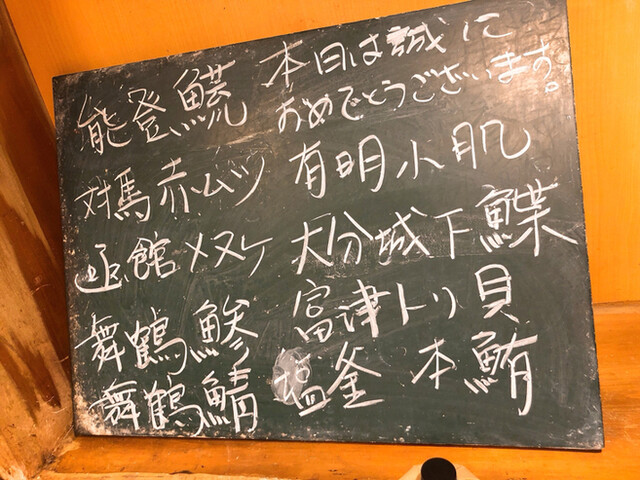 本日は誠に
おめでとうございます。
有明小肌
大分城下鰈
富津トリ貝
塩釜 本鮪
能登鯱
対馬赤ムツ
函館メヌケ
舞鶴鯵
舞鶴鯖